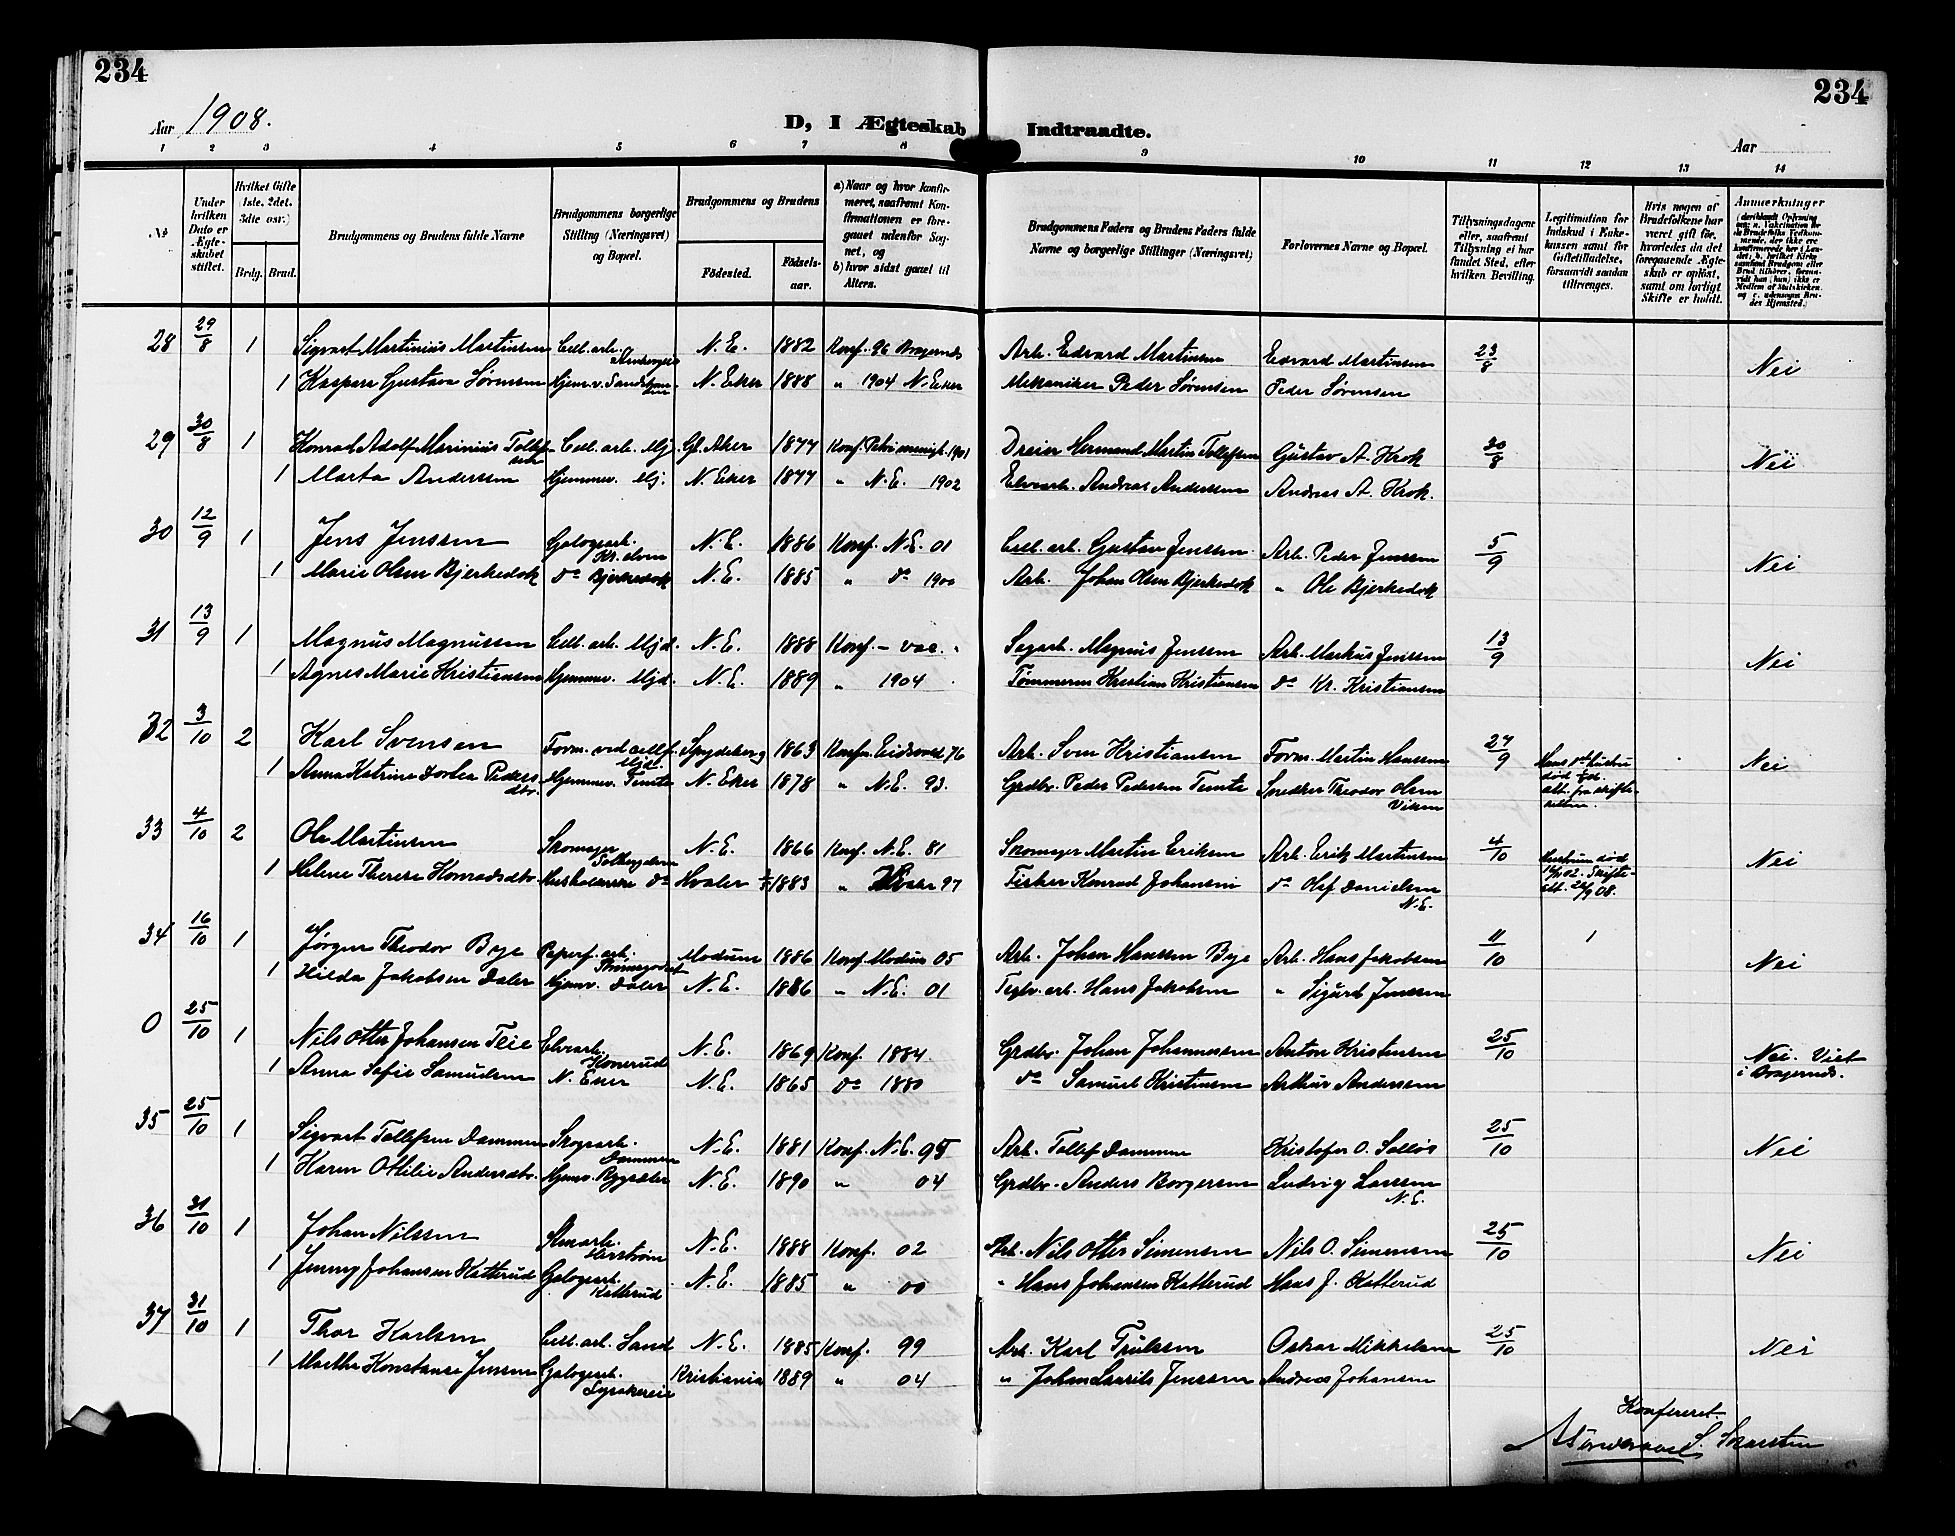 234
234
Aar 1908.
D, I Ægteskab Indtraadte.
Aar
1 2 3 4 5 6 7 8 9 10 11 12 13 14
No
Under hvilken Dato er Ægteskabet stiftet.
Hvilket Gifte (1ste, 2det, 3dte osv.)
Brdg. Brud.
Brudgommens og Brudens fulde Navne
Brudgommens borgerlige Stilling (Næringsvei) og Bopæl.
Brudgommens og Brudens
Födested. Födselsaar.
a) Naar og hvor konfirmeret, saafremt Konfirmationen er foregaaet udenfor Sognet, og
b) hvor sidst gaaet til Alters.
Brudgommens Faders og Brudens Faders fulde Navne og borgerlige Stillinger (Næringsvei)
Forlovernes Navne og Bopæl.
Tillysningsdagene eller, saafremt Tillysning ei har fundet Sted, efter hvilken Bevilling.
Legitimation for Indskud i Enkekassen samt for Giftetilladelse, forsaavidt saadan tiltrænges.
Hvis nogen af Brudefolkene har været gift för, hvorledes da det foregaaende Ægteskab er oplöst, samt om lovligt Skifte er holdt.
Anmærkninger
28 29/8 1 Sigvart Martinius Martinsen Cell. arb. N.E. 1882 Konf. 96 Bragernes Arb. Edvard Martinsen Edvard Martinsen 23/8 Nei
1 Kaspara Gustava Sørensen Hjem. v. N. Eker 1888 " 1904 N. Eker Mekaniker Peder Sørensen Peder Sørensen
29 30/8 1 Konrad Adolf Marinius Tollefsen Cell. arb. Mj. Gl. Aker 1877 Konf. Petri menigh. 1901 Dreier Hermand Martin Tollefsen Gustav A. Krok 30/8 Nei
1 Marta Andersen Hjemmev. Mj. N. Eker 1877 " N.E. 1902 Elvearb. Andreas Andersen Andreas A. Krok.
30 12/9 1 Jens Jenssen Galogearb. Kr. elven N.E. 1886 Konf. N.E. 01 Cell. arb. Gustav Jenssen Arb. Peder Jenssen 5/9 Nei
1 Marie Olsen Bjerkedok do Bjerkedok N.E. 1885 " do 1900 Arb. Johan Olsen Bjerkedok " Ole Bjerkedok
31 13/9 1 Magnus Magnussen Cell. arb. Mjd. N.E. 1888 Konf. - vac. Sagarb. Magnus Jenssen Arb. Markus Jenssen 13/9 Nei
1 Agnes Marie Kristiansen Hjemmev. Mjd. N.E. 1889 " 1904 Tømmerm. Kristian Kristiansen do Kr. Kristiansen
32 3/10 2 Karl Svensen Form. ved cellf. Mjd. Spydeberg 1863 Konf. Eidsvold 76 Arb. Sven Kristiansen Form. Martin Hanssen 27/9 Nei
1 Anna Katrine Dorlea Pedersdtr. Hjemmev. Temte N. Eker 1878 " N.E. 93. Grdbr. Peder Pedersen Temte Snedker Theodor Olsen Viken
33 4/10 2 Ole Martinsen Skomager Solbergelven N.E. 1866 Konf. N.E. 81 Skomager Martin Eriksen Arb. Erik Martinsen 4/10 Hustruen død Nei
1 Helene Therese Konradsdtr. Husholderske do Hvaler 1883 " Hvaler 97 Fisker Konrad Johansen do Olaf Danielsen N.E.
34 16/10 1 Jørgen Theodor Bye Papirf. arb. Modum 1886 Konf. Modum 05 Arb. Johan Hanssen Bye Arb. Hans Jakobsen 11/10 1 Nei
1 Hilda Jakobsen Daler Hjemv. Daler N.E. 1886 " N.E. 01 Teglv. arb. Hans Jakobsen " Sigurd Jenssen
0 25/10 1 Nils Otto Johansen Teie Elvearb. Konerud N.E. 1869 Konf. 1884. Grdbr. Johan Johannessen Anton Kristensen 25/10 Nei. Viet
1 Anna Sofie Samuelsen N. Eker N.E. 1865 do 1880 do Samuel Kristensen Arthur Andersen i Bragernes.
35 25/10 1 Sigvart Tollefsen Dammen Skogsarb. Dammen N.E. 1881 Konf. N.E. 95 Arb. Tollef Dammen Kristofer O. Solløs 25/10 Nei
1 Karen Othilie Andersdtr. Hjemv. N.E. 1890 " 04 Grdbr. Anders Borgersen Ludvig Larssen N.E.
36 31/10 1 Johan Nilssen N.E. 1888 Konf. 02 Arb. Nils Otto Simensen Nils O. Simensen 25/10 Nei
1 Jenny Johansen Katterud Galogearb. Katterud N.E. 1885 " 00 " Hans Johansen Katterud Hans J. Katterud
37 31/10 1 Thor Karlsen Cell. arb. Sand N.E. 1885 Konf. 99 Arb. Karl Trulssen Oskar Mikkelsen 25/10 Nei
1 Marthe Konstanse Jenssen Galogearb. Kristiania 1889 " 04 " Johan Laurits Jenssen Andreas Johansen
Konfereret.